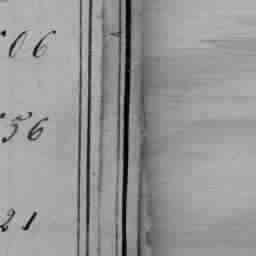 06
56
21